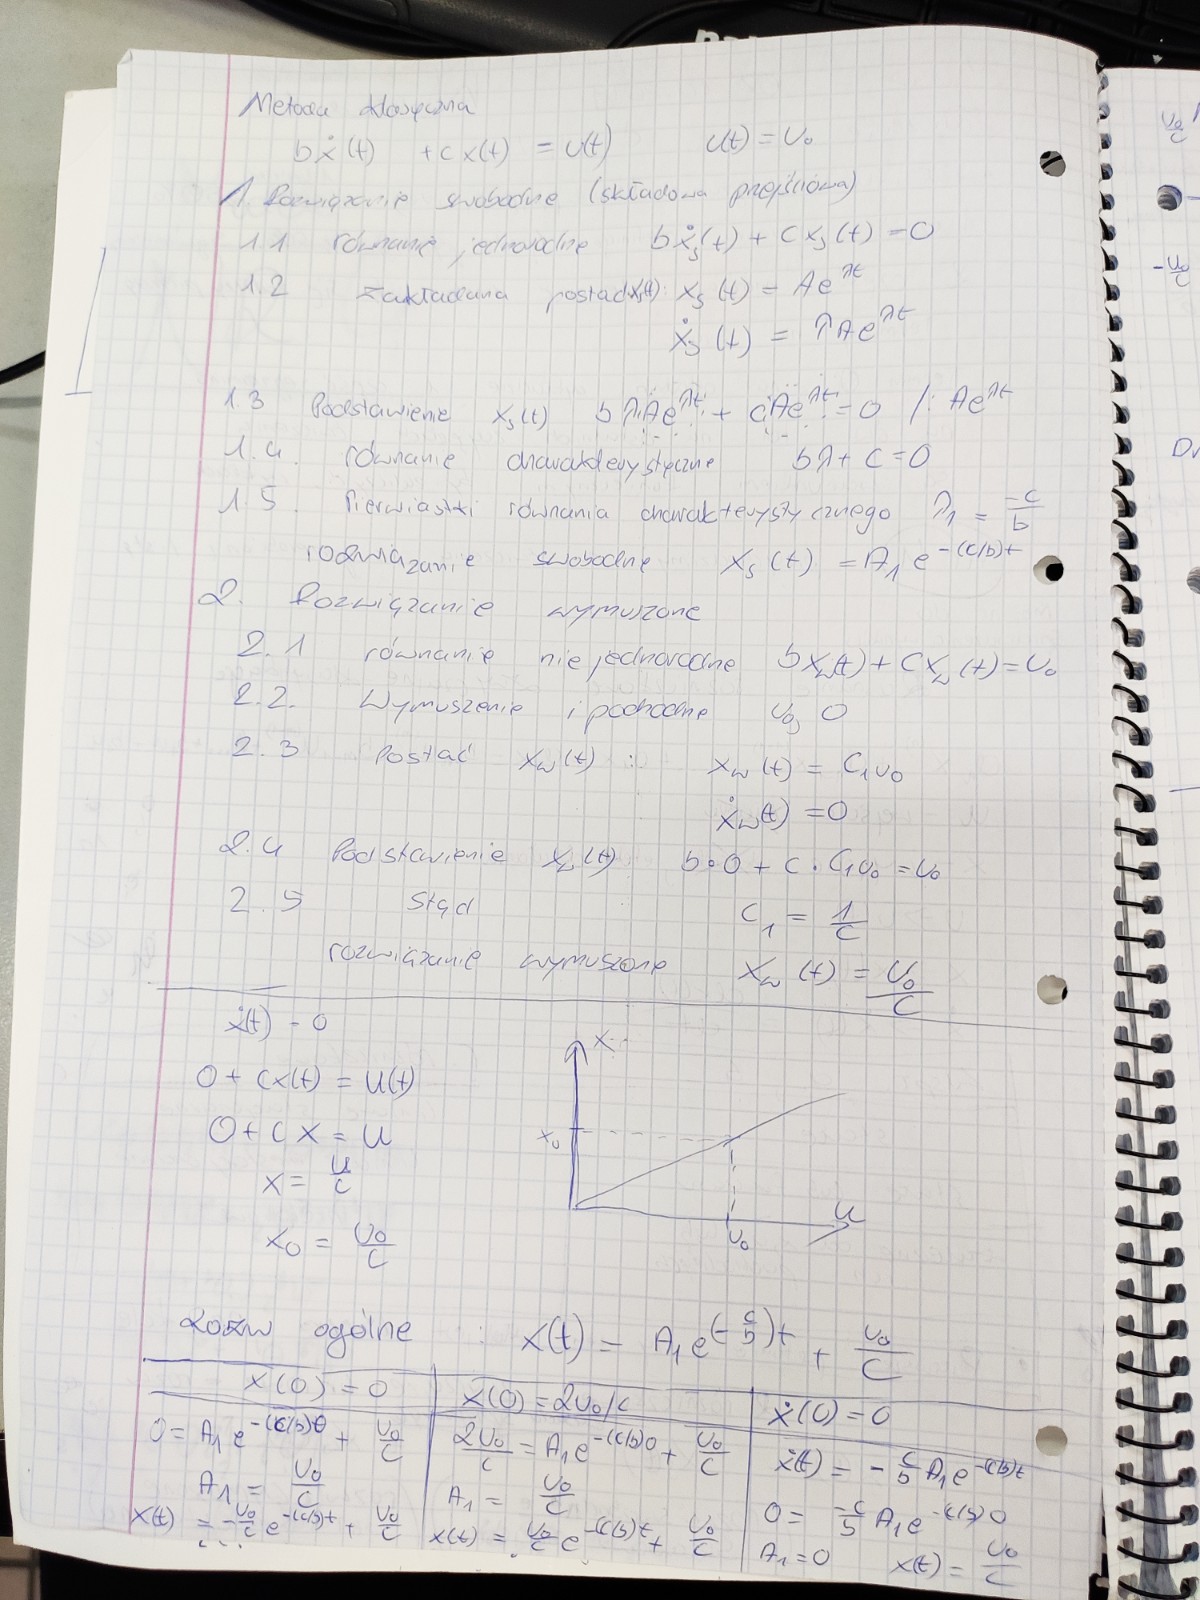 Metoda klasyczna
bẋ(t) + cx(t) = u(t) u(t) = u₀
1. Rozwiązanie swobodne (składowa przejściowa)
1.1 równanie jednorodne bẋₛ(t) + cxₛ(t) = 0
1.2 Zakładana postać xₛ(t): xₛ(t) = Ae^λt
ẋₛ(t) = λAe^λt
1.3 Podstawienie xₛ(t) bλAe^λt + cAe^λt = 0 /: Ae^λt
1.4. równanie charakterystyczne bλ + c = 0
1.5 Pierwiastki równania charakterystycznego λ₁ = -c/b
rozwiązanie swobodne xₛ(t) = A₁e^-(c/b)t
2. Rozwiązanie wymuszone
2.1 równanie niejednorodne bẋw(t) + cxw(t) = u₀
2.2. Wymuszenie i pochodne u₀, 0
2.3 Postać xw(t) : xw(t) = C₁u₀
ẋw(t) = 0
2.4 Podstawienie xw(t) b·0 + c·C₁u₀ = u₀
2.5 Stąd C₁ = 1/c
rozwiązanie wymuszone xw(t) = u₀/c
ẋ(t) = 0
0 + cx(t) = u(t)
0 + cx = u
x = u/c
x₀ = u₀/c
x
x₀
u
u₀
Rozw ogólne : x(t) = A₁e^(-c/b)t + u₀/c
x(0) = 0
0 = A₁e^-(c/b)0 + u₀/c
A₁ = u₀/c
x(t) = -u₀/c e^-(c/b)t + u₀/c
x(0) = 2u₀/c
2u₀/c = A₁e^-(c/b)0 + u₀/c
A₁ = u₀/c
x(t) = u₀/c e^-(c/b)t + u₀/c
ẋ(0) = 0
ẋ(t) = -c/b A₁e^-(c/b)t
0 = -c/b A₁e^-(c/b)0
A₁ = 0 x(t) = u₀/c
u₀/c
-u₀/c